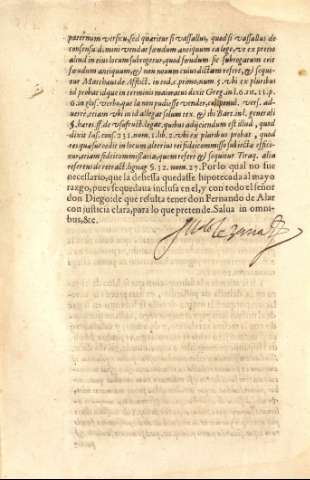 paternum versicu, sed quæritur si vassallus, quod si vassallus de
consensu domini vendat fœudum antiquum ea lege, vt ex pretio
aliud in eius locum subrogetur, quod fœudum sic subrogatum erit
fœudum antiquum, & non nouum cuius dictum refert, & sequi-
tur
in eod. c. primo, num. 5. vbi ex pluribus
id probat idque in terminis maioratus dixit Greg. in l. 6. tit. 11. p.
6. in glos. verbo, que la non pudiesse vender,
vers. ad-
uerte, etiam vbi in id allegat
& ibi Bart. in l. generali
§.
ff. de vsufruct. legat. quibus adijciendum est illud, quod
dixit
cons. 231. num.
lib. 2. vbi ex pluribus probat, quod
res quæ succedit in locum alterius rei fideicommisso subiectæ effici-
tur, etiam fideicommissaria, quem refert & sequitur Tiraq. alia
referens de retract. lignag. §. 32. num. 27. Por lo qual no fue
necessario, que la dehessa quedasse hipotecada al mayo
razgo, pues se quedaua inclusa en el, y con todo el señor
don Diego: de que resulta tener don Fernando de Alar
con justicia clara, para lo que pretende. Salua in omni-
bus, &c.